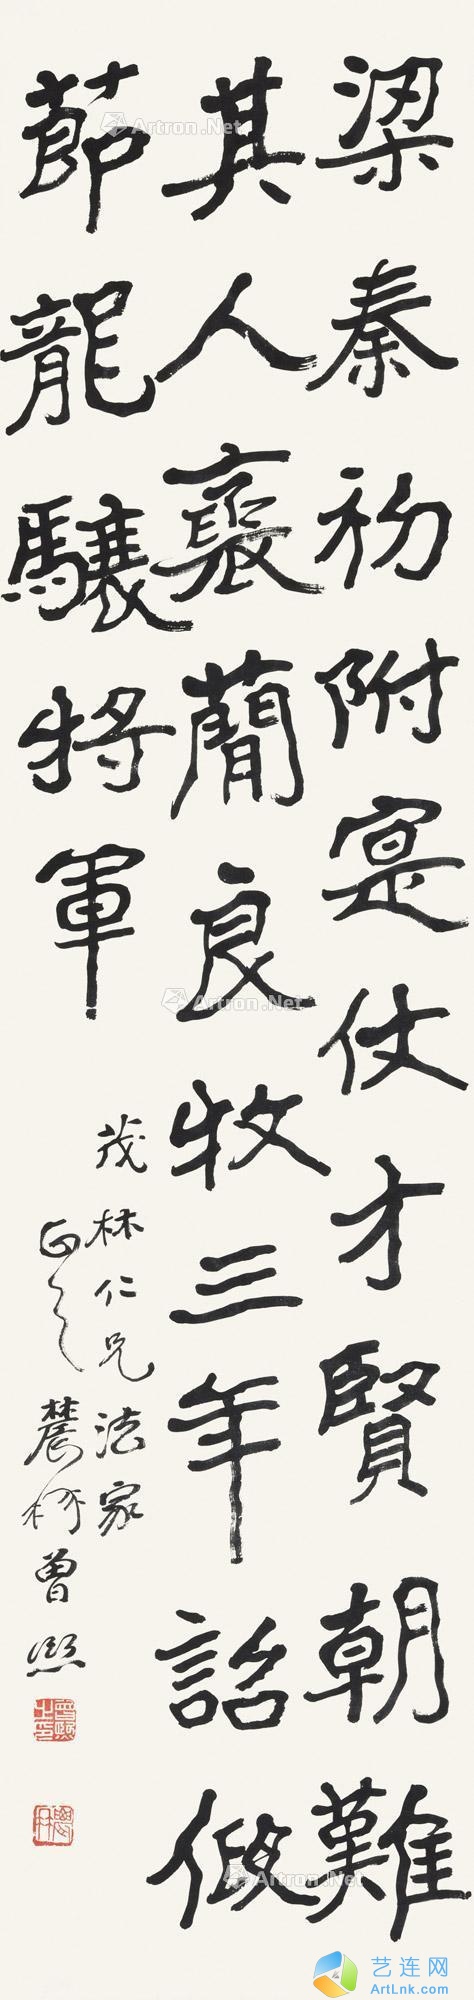 梁秦初附寔仗才賢朝難
其人裦蕳良牧三年詔假
莭龍驤將軍
茂林仁兄法家
正之 農髯曾熙
Artron.Net
Artron.Net
Artron.Net
艺连网
ArtLnk.com